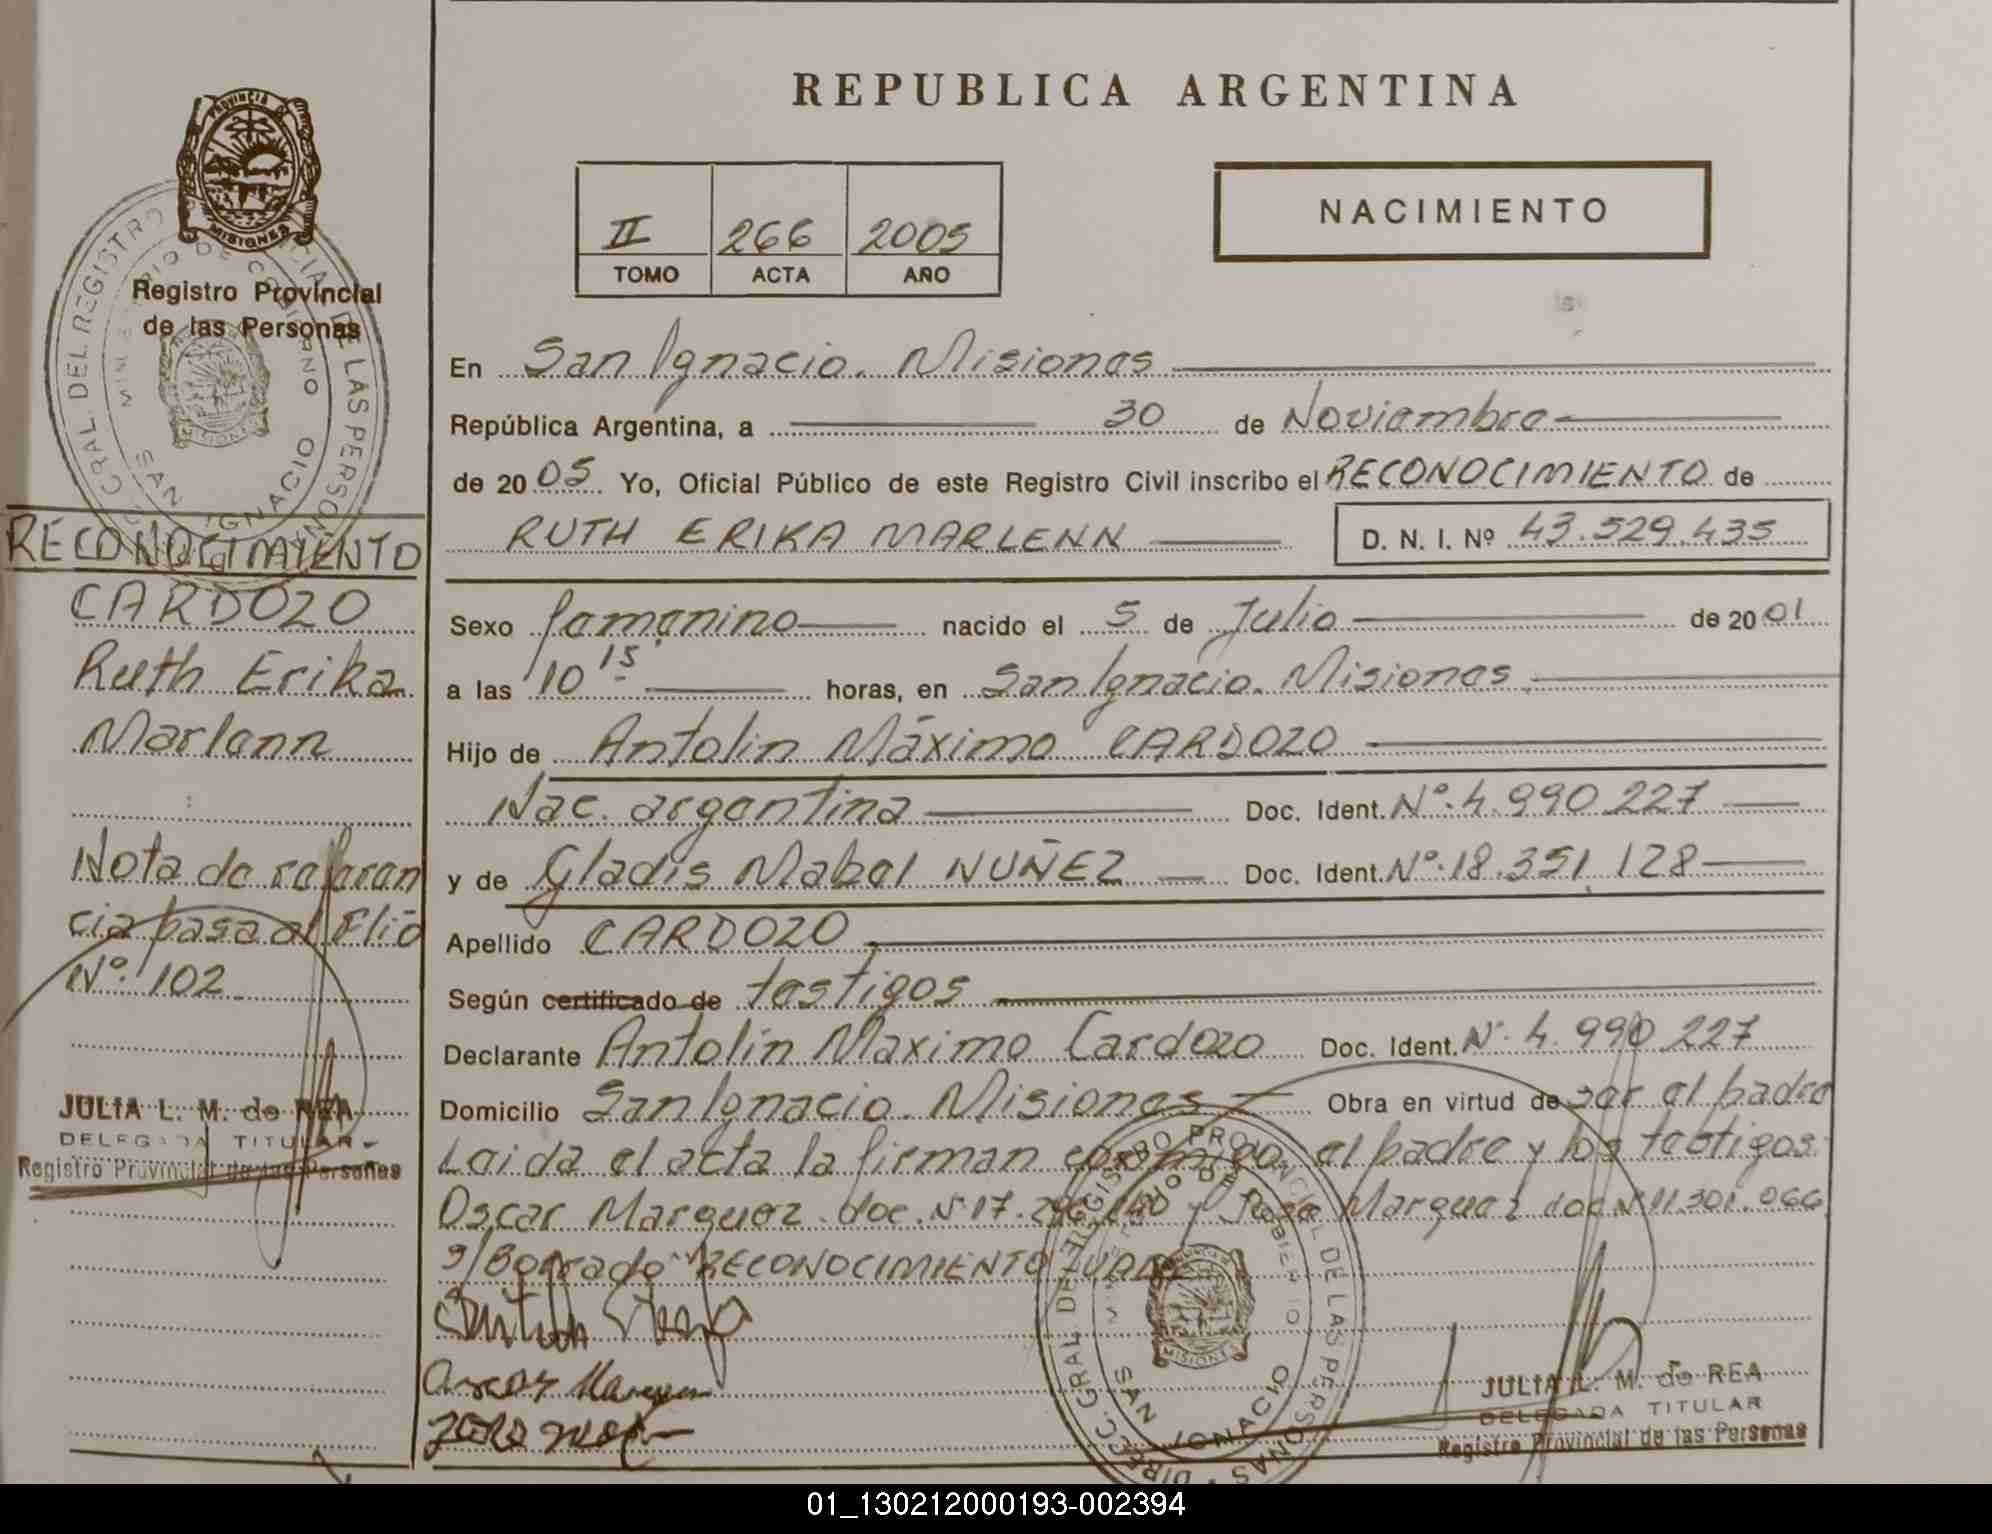 PROVINCIA DE
MISIONES
Registro Provincial
de las Personas
DIRECC. GRAL DEL REGISTRO PROVINCIAL DE LAS PERSONAS
MINISTERIO DE GOBIERNO
SAN IGNACIO
RECONOCIMIENTO
CARDOZO
Ruth Erika
Marlenn
Nota de referen
cia pasa al Flio
Nº 102
JULIA L. M. de REA
DELEGADA TITULAR
Registro Provincial de las Personas
REPUBLICA ARGENTINA
II 266 2005
TOMO ACTA AÑO
NACIMIENTO
En San Ignacio. Misiones
República Argentina, a 30 de Noviembre
de 2005 Yo, Oficial Público de este Registro Civil inscribo el RECONOCIMIENTO de
RUTH ERIKA MARLENN D. N. I. Nº 43.529.435
Sexo femenino nacido el 5 de Julio de 2001
a las 10 15 horas, en San Ignacio. Misiones
Hijo de Antolin Máximo CARDOZO
Nac. argentina Doc. Ident. Nº 4.990.227
y de Gladis Mabel NUÑEZ Doc. Ident. Nº 18.351.128
Apellido CARDOZO
Según certificado de testigos
Declarante Antolin Maximo Cardozo Doc. Ident. Nº 4.990.227
Domicilio San Ignacio. Misiones Obra en virtud de ser el padre
Leida el acta la firman conmigo, el padre y los testigos:
Oscar Marquez doc. Nº 17. y Marquez doc Nº 11.301.066
s/Borrado "RECONOCIMIENTO
Oscar Marquez
JULIA L. M. de REA
DELEGADA TITULAR
Registro Provincial de las Personas
DIRECC. GRAL DEL REGISTRO PROVINCIAL DE LAS PERSONAS
MINISTERIO DE GOBIERNO
MISIONES
SAN IGNACIO
01_130212000193-002394